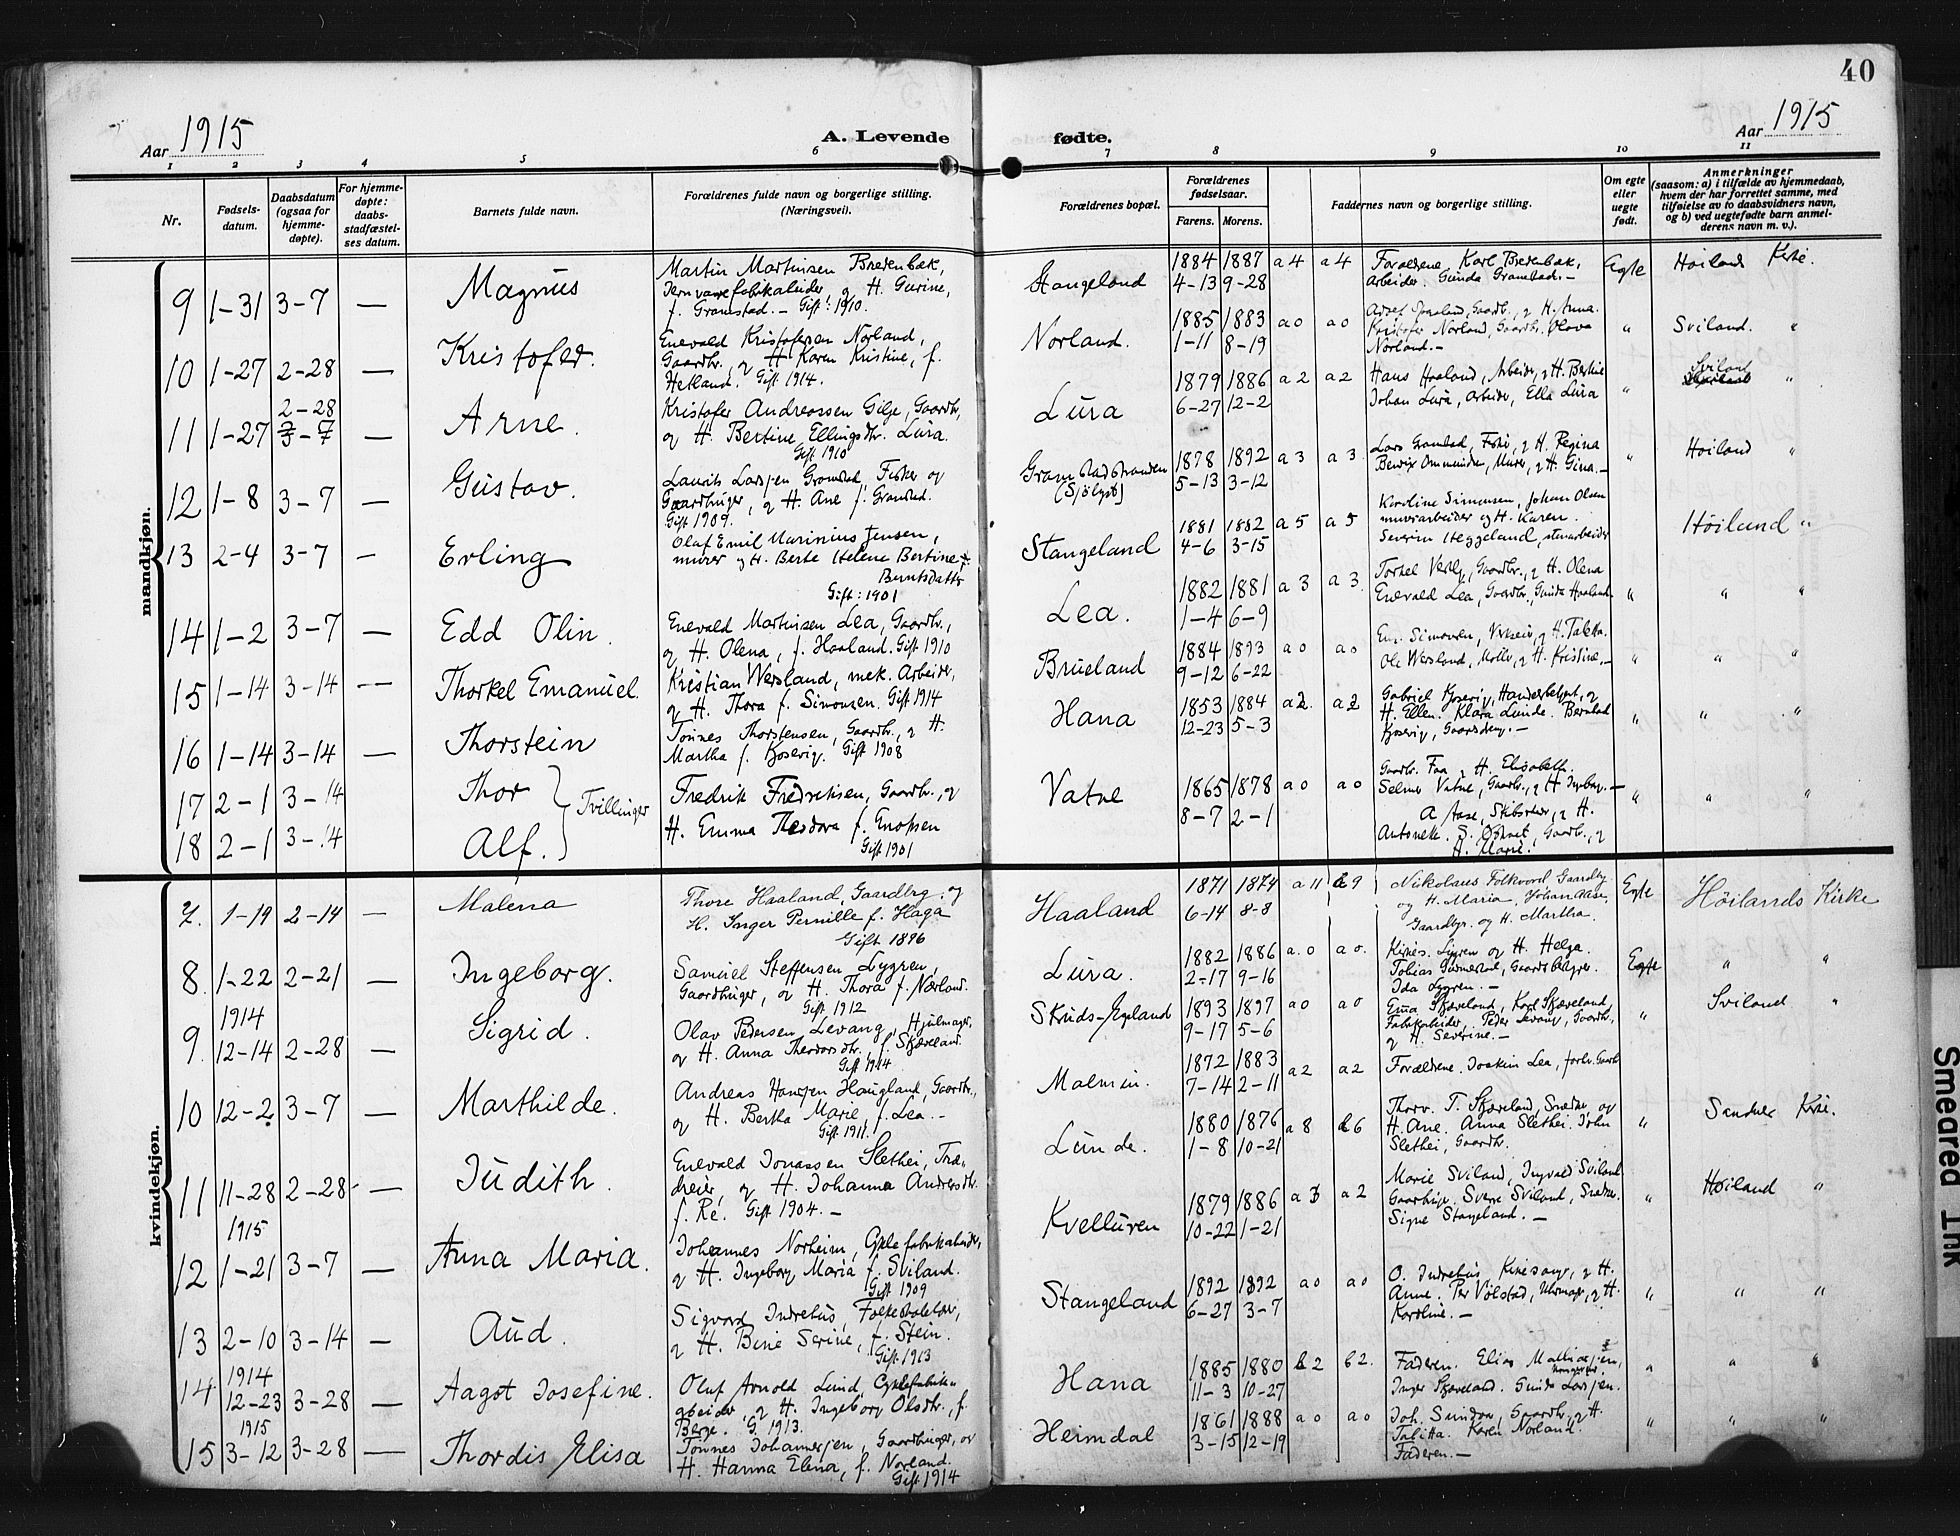 40
Aar 1915
A. Levende fødte.
Aar 1915
1 2 3 4 5 6 7 8 9 10 11
Nr.
Fødsels-
datum.
Daabsdatum
(ogsaa for
hjemme-
døpte).
For hjemme-
døpte:
daabs-
stadfæstel-
ses datum.
Barnets fulde navn.
Forældrenes fulde navn og borgerlige stilling.
(Næringsvei).
Forældrenes bopæl.
Forældrenes
fødselsaar.
Farens. Morens.
Faddernes navn og borgerlige stilling.
Om egte
eller
uegte
født.
Anmerkninger
(saasom: a) i tilfælde av hjemmedaab,
hvem der har forrettet samme, med
tilføielse av to daabsvidners navn,
og b) ved uegtefødte barn anmel-
derens navn m. v.).
mandkjøn.
9 1-31 3-7 — Magnus
Martin Martinsen Bredenbæk,
Jernvarefabrikarbeider, og H. Gurine,
f. Gramstad. — Gift: 1910.
Stangeland
1884 1887 a 4 a 4
4-13 9-28
Forældrene, Karl Bredenbæk,
Arbeider. Gunda Gramstad. —
Egte Høiland Kirke.
10 1-27 2-28 — Kristofer.
Enevald Kristofersen Norland,
Gaardbr., og H. Karen Kristine, f.
Hetland. Gift 1914.
Norland.
1885 1883 a 0 a 0
1-11 8-19
Gaardbr., og H. Anna.
Kristofer Norland, Gaardbr. Olava
Norland. —
" Sviland. "
11 1-27 2-28
3-7 — Arne.
Kristofer Andreassen Gilje, Gaardbr.,
og H. Bertine Ellingsdtr. Lura.
Gift 1910
Lura
1879 1886 a 2 a 2
6-27 12-2
Hans Haaland, Arbeider, og H. Bertine
Johan Lura, Arbeider, Ella Lura
" Sviland "
12 1-8 3-7 — Gustav.
Laurits Larsen Gramstad, Fisker og
Gaardbruger, og H. Ane f. Gramstad.
Gift 1909.
Gramstadstranden
(Sjölyst)
1878 1892 a 3 a 3.
5-13 3-12
Lars Gramstad, Fisker, og H. Regina
Ommundsen, Murer, og H. Gina. —
" Høiland "
13 2-4 3-7 — Erling
Olaf Emil Marinius Jensen,
murer og H. Berte Helene Bertine f.
Berntsdatter
Gift: 1901
Stangeland
1881 1882 a 5 a 5
4-6 3-15
Karoline Simonsen, Johan Olsen
murarbeider og H. Karen.
Severin Heggeland, stenarbeider
Höiland "
14 1-2 3-7 — Edd Olin.
Enevald Martinsen Lea, Gaardbr.,
og H. Olena, f. Haaland. Gift 1910
Lea.
1882 1881 a 3 a 3.
1-4 6-9
Torkel Gaardbr., og H. Olena
Enevald Lea, Gaardbr., Gunda Haaland.
" " "
15 1-14 3-14 — Thorkel Emanuel.
Kristian Wersland, mek. Arbeider,
og H. Thora f. Simonsen. Gift 1914
Brueland
1884 1893 a 0 a 0
9-12 6-22
Simonsen, og H. Taletta.
Ole Wersland, og H. Kristine. —
" " "
16 1-14 3-14 — Thorstein
Tönnes Thorstensen, Gaardbr., og H.
Martha f. Kjosevig. Gift 1908
Hana
1853 1884 a 2. a 2
12-23 5-3
Gabriel Kjosevig, og
H. Ellen. Klara Lunde. Berntad
Kjosevig, Gaardsdreng. —
" " "
17 2-1 3-14 Thor
18 2-1 3-14 Alf. } Tvillinger
Fredrik Fredriksen, Gaardbr., og
H. Emma Theodora f. Enoksen
Gift 1901
Vatne
1865 1878 a 0 a 0
8-7 2-1
Gaardbr. Faa og H. Elisabeth.
Selmer Vatne, Gaardbr., og H. Ingeborg. —
A. Aase, og H.
Gaardbr., og
H. Marie.
" " "
kvindekjøn.
7. 1-19 2-14 — Malena
Thore Haaland, Gaardbrg. og
H. Inger Pernille f. Haga
Gift 1896
Haaland
1871 1874 a 11 b 9
6-14 8-8
Nikolaus Folkvord, Gaardbrg.
og H. Maria, Johan Aase,
Gaardbgr. og H. Martha.
Egte Höilands Kirke
8. 1-22 2-21 — Ingeborg.
Samuel Steffensen Lygren,
Gaardbruger, og H. Thora f. Nærland.
Gift 1912
Lura.
1882 1886 a. 0 a 0.
2-17 9-16
Lygren og H. Helga.
Tobias Gaardsbestyrer.
Ida Lygren. —
Egte " "
1914
9. 12-14 2-28 — Sigrid.
Olav Pedersen Levang, Hjulmager,
og H. Anna Theodorsdtr. f. Skjæveland.
Gift 1914
Skruds-Egeland
1893 1897 a 0 a 0
9-17 5-6
Skjæveland, Karl Skjæveland,
Fabrikarbeider, Peder Levang, Gaardbr.,
og H. Severine. —
" Sviland "
10 12-2 3-7 — Marthilde.
Andreas Hansen Haugland, Gaardbr.,
og H. Bertha Marie, f. Lea. —
Gift 1911.
Malmin.
1872 1883 a 2 a 2
7-14 2-11
Forældrene. Joakim Lea, forhv. Gaardbr.
11 11-28 2-28 — Judith.
Enevald Jonassen Slethei, Træ-
dreier, og H. Johanna Andersdtr.
f. Re. Gift 1904. —
Lunde.
1880 1876 a 8 b 6
1-8 10-21
Thorv. T. Skjæveland, Snedker, og
H. Ane. Anna Slethei. John
Slethei, Gaardbr.
" Sandnes Kirke.
1915
12 1-21 3-7 — Anna Maria.
Johannes Norheim, Cyklefabrikarbeider,
og H. Ingeborg Maria f. Sviland.
Gift 1909
Kvelluren
1879 1886 a 3 a 2
10-22 1-21
Marie Sviland, Ingvald Sviland
Gaardbruger. Sverre Sviland, Snedker.
Signe Stangeland. —
" Høiland "
13 2-10 3-14 — Aud.
Sigvard Indrebus, Folkeskolelærer,
og H. Bine Serine, f. Stein.
Gift 1913
Stangeland
1892 1892 a 0 a 0
6-27 3-7
O. Indrebus, Kirkesanger, og H.
Anne. Per Völstad, Uhrmager, og H.
Karoline. —
" " "
1914
14 12-23 3-28 — Aagot Josefine.
Oluf Arnold Lund, Cyklefabrik-
arbeider, og H. Ingeborg Olsdtr., f.
Berge. G. 1913.
Hana
1885 1880 b 2 b 2.
11-3 10-27
Faderen. Elias Mathiassen,
Inger Skjæveland. Gunda Larsen.
" " "
1915
15 3-12 3-28 — Thordis Elisa
Tönnes Johannesen, Gaardbruger, og
H. Hanna Elena, f. Norland.
Gift 1914
Heimdal
1861 1888 a 0 a 0
3-15 12-19
Joh. Sundar, Gaardbr., og H.
Tabitta. Karen Norland.
Faderen. —
" " "
Smeared Ink